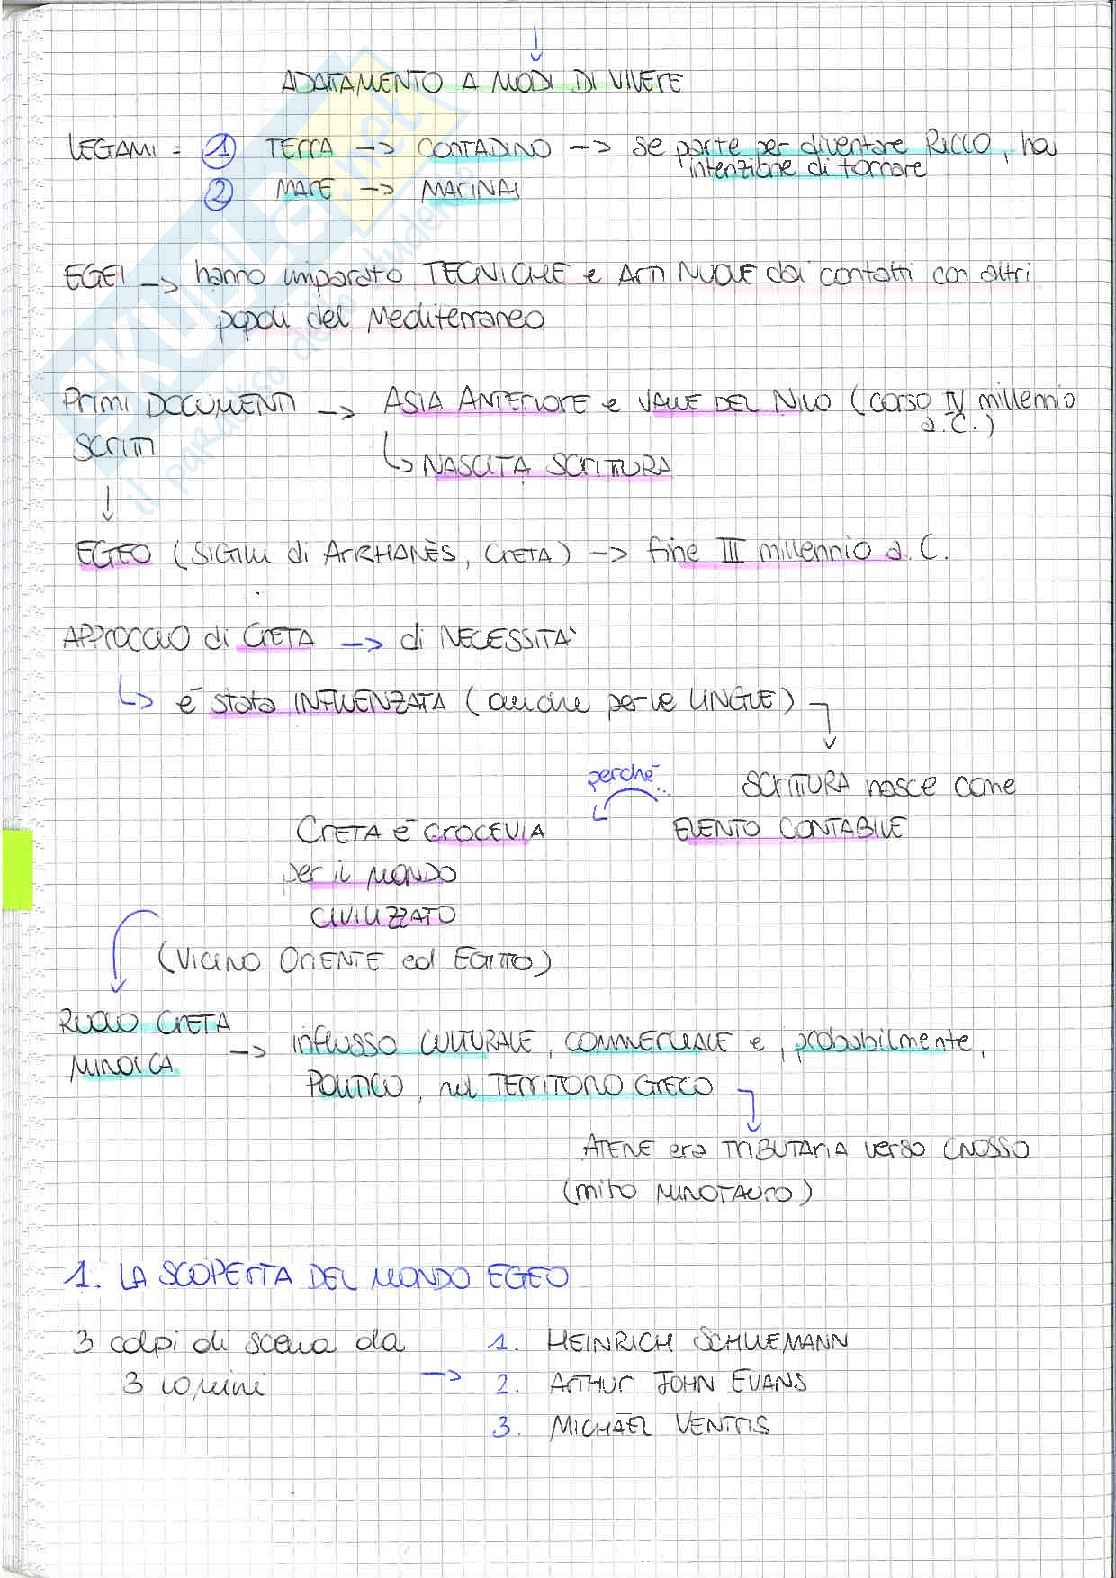 ADATTAMENTO A MODI DI VIVERE
LEGAMI = 1 TERRA -> CONTADINO -> se parte per diventare RICCO, ha
intenzione di tornare
2 MARE -> MARINAI
EGEI -> hanno imparato TECNICHE e ARTI NUOVE dai contatti con altri
popoli del Mediterraneo
Primi DOCUMENTI -> ASIA ANTERIORE e VALLE DEL NILO (corso IV millennio
SCRITTI a.C.)
NASCITA SCRITTURA
EGEO (SIGILLI di ARKHANÈS, CRETA) -> fine III millennio a.C.
APPROCCIO di CRETA -> di NECESSITA'
è stata INFLUENZATA (anche per le LINGUE)
perchè SCRITTURA nasce come
CRETA è CROCEVIA ELENTO CONTABILE
per il MONDO
CIVILIZZATO
(VICINO ORIENTE ed EGITTO)
RUOLO CRETA
MINOICA -> influsso CULTURALE, COMMERCIALE e, probabilmente,
POLITICO, nel TERRITORIO GRECO
ATENE era TRIBUTARIA verso CNOSSO
(mito MINOTAURO)
1. LA SCOPERTA DEL MONDO EGEO
3 colpi di scena da 1. HEINRICH SCHLIEMANN
3 uomini -> 2. ARTHUR JOHN EVANS
3. MICHAEL VENTRIS
SKUOLA.net
il paradiso dello studente